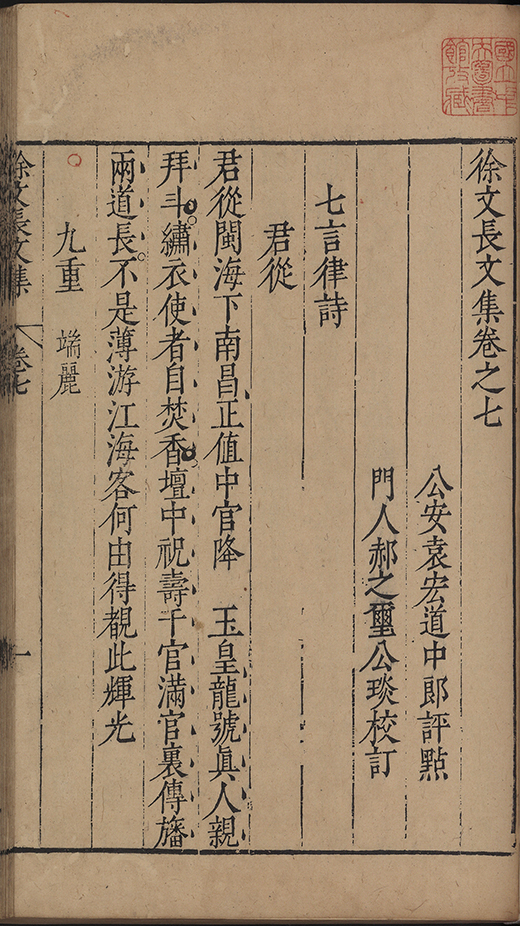 國立中
央圖書
館收藏
徐文長文集卷之七
公安袁宏道中郎評點
門人郝之璽公琰校訂
七言律詩
君從
君從閩海下南昌正值中官降　玉皇龍號眞人親
拜斗繡衣使者自焚香壇中祝壽千官滿官裏傳旛
兩道長不是薄游江海客何由得覩此輝光
九重　端麗
徐文長文集　卷七　一